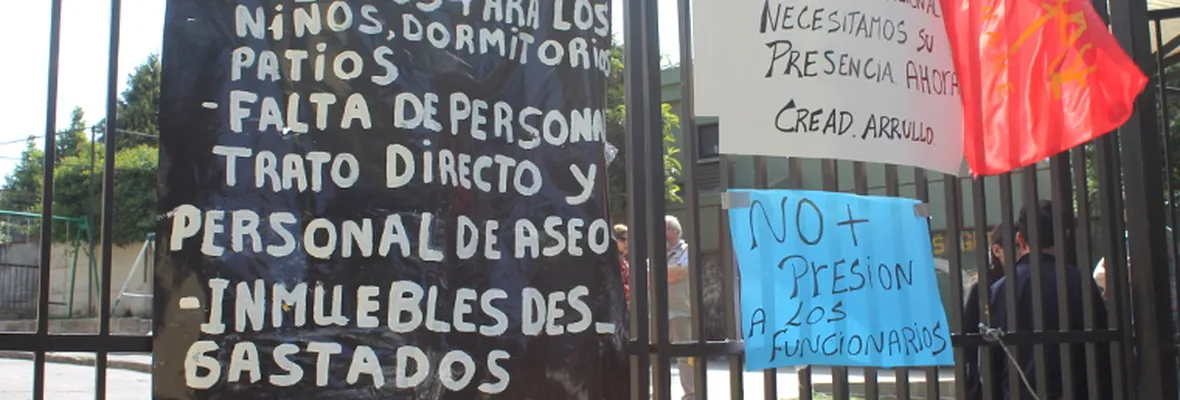 PARA LOS
NIÑOS, DORMITORIOS
PATIOS
- FALTA DE PERSONAL
TRATO DIRECTO Y
PERSONAL DE ASEO
- INMUEBLES DES_
GASTADOS
NECESITAMOS SU
PRESENCIA AHORA
CREAD. ARRULLO.
NO +
PRESION
A LOS
FUNCIONARIOS